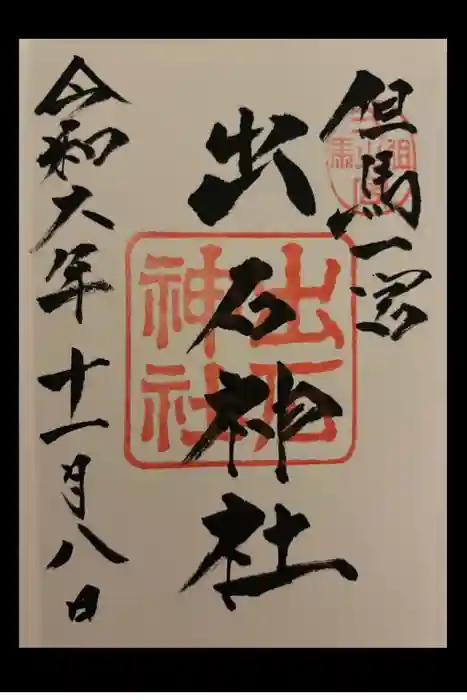 但馬一宮
出石神社
令和六年十一月八日
出石神社